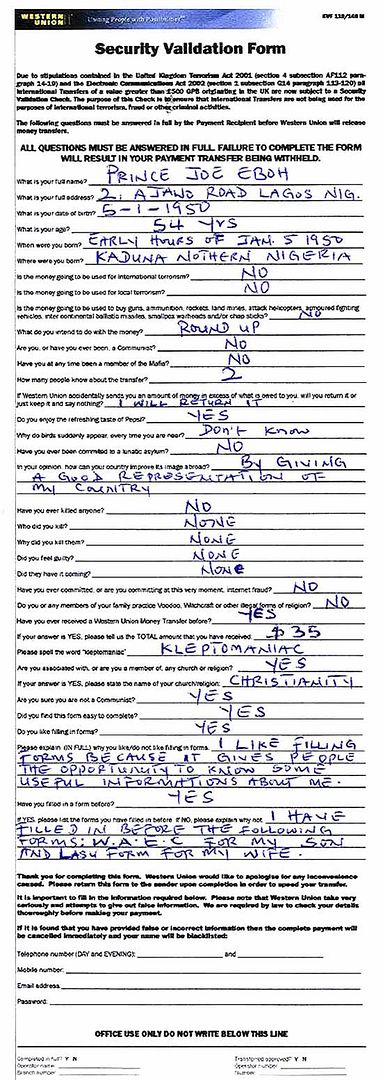 WESTERN UNION
Uniting People with Possibilities
Security Validation Form
Due to stipulations contained in the United Kingdom Terrorism Act 2001 (section 4 subsection AF112 para-
graph 14-19) and the Electronic Communications Act 2002 (section 1 subsection G14 paragraph 113-120) all
International Transfers of a value greater than £500 GPB originating in the UK are now subject to a Security
Validation Check. The purpose of this Check is to ensure that International Transfers are not being used for the
purposes of international terrorism, fraud or other criminal activities.
The following questions must be answered in full by the Payment Recipient before Western Union will release
money transfers.
ALL QUESTIONS MUST BE ANSWERED IN FULL. FAILURE TO COMPLETE THE FORM
WILL RESULT IN YOUR PAYMENT TRANSFER BEING WITHHELD.
What is your full name? PRINCE JOE EBOH
What is your full address? 2, AJAWO ROAD LAGOS NIG.
What is your date of birth? 5-1-1950
What is your age? 54 YRS
When were you born? EARLY HOURS OF JAN. 5 1950
Where were you born? KADUNA NOTHERN NIGERIA
Is the money going to be used for international terrorism? NO
Is the money going to be used for local terrorism? NO
Is the money going to be used to buy guns, ammunition, rockets, land mines, attack helicopters, armoured fighting
vehicles, inter continental ballistic missiles, smallpox warheads and/or chap sticks? NO
What do you intend to do with the money? ROUND UP
Are you, or have you ever been, a Communist? NO
Have you at any time been a member of the Mafia? NO
How many people know about the transfer? 2
If Western Union accidentally sends you an amount of money in excess of what is owed to you, will you return it or
just keep it and say nothing? I WILL RETURN IT
Do you enjoy the refreshing taste of Pepsi? YES
Why do birds suddenly appear, every time you are near? DON'T KNOW
Have you ever been commited to a lunatic asylum? NO
In your opinion, how can your country improve its image abroad? BY GIVING
A GOOD REPRESENTATION OF
MY COUNTRY
Have you ever killed anyone? NO
Who did you kill? NONE
Why did you kill them? NONE
Did you feel guilty? NONE
Did they have it coming? NONE
Have you ever commited, or are you committing at this very moment, internet fraud? NO
Do you or any members of your family practice Voodoo, Witchcraft or other illegal forms of religion? NO
Have you ever received a Western Union Money Transfer before? YES
If your answer is YES, please tell us the TOTAL amount that you have received: $35
Please spell the word "kleptomaniac" KLEPTOMANIAC
Are you associated with, or are you a member of, any church or religion? YES
If your answer is YES, please state the name of your church/religion: CHRISTIANITY
Are you sure you are not a Communist? YES
Did you find this form easy to complete? YES
Do you like filling in forms? YES
Please explain (IN FULL) why you like/do not like filling in forms. I LIKE FILLING
FORMS BECAUSE IT GIVES PEOPLE
THE OPPORTUNITY TO KNOW SOME
USEFUL INFORMATIONS ABOUT ME.
Have you filled in a form before? YES
If YES, please list the forms you have filled in before. If NO, please explain why not. I HAVE
FILLED IN BEFORE THE FOLLOWING
FORMS: W.A.E.C FOR MY SON
AND LASU FORM FOR MY WIFE.
Thank you for completing this form. Western Union would like to apologise for any inconvenience
caused. Please return this form to the sender upon completion in order to speed your transfer.
It is important to fill in the information required below. Please note that Western Union take very
seriously and attempts to give out false information. We are required by law to check your details
thoroughly before making your payment.
If it is found that you have provided false or incorrect information then the complete payment will
be cancelled immediately and your name will be blacklisted:
Telephone number (DAY and EVENING): and
Mobile number:
Email address
Password:
OFFICE USE ONLY DO NOT WRITE BELOW THIS LINE
Completed in full? Y N Transferred approved? Y N
Operator name Operator number
Branch number Number